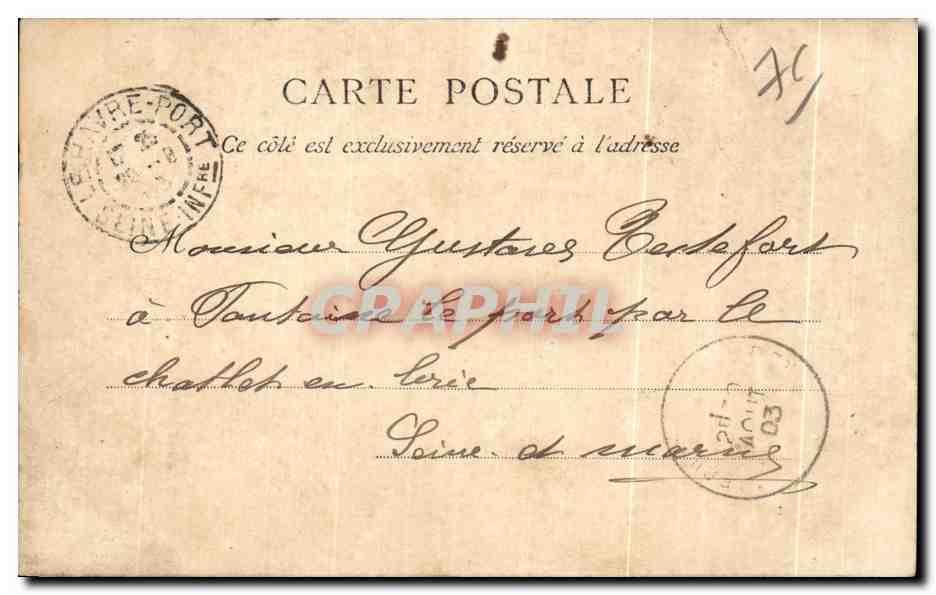 CARTE POSTALE
Ce côté est exclusivement réservé à l'adresse
LE HAVRE-PORT
SEINE-INFRE
75
Monsieur Gustave Testefort
à Fontaine le port par le
chatlet en brie
Seine et marne
AOUT
03
GRAPHIL